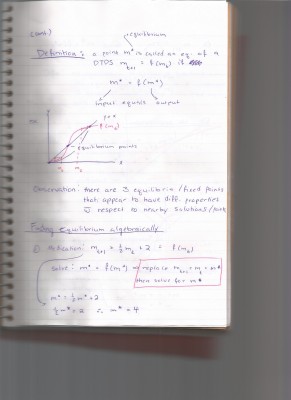 (cont.)
equilibrium
Definition: a point m* is called an eq. of a
DTDS m_{t+1} = f(m_t) if
m* = f(m*)
input equals output
y = x
f(m_t)
equilibrium points
m_t
Observation: there are 3 equilibria / fixed points
that appear to have diff. properties
respect to nearby solutions /
Finding equilibrium algebraically
① Motivation: m_{t+1} = ½m_t + 2 = f(m_t)
Solve: m* = f(m*) ⇒ replace m_{t+1} = m_t = m*
then solve for m*
m* = ½m* + 2
½m* = 2 ∴ m* = 4